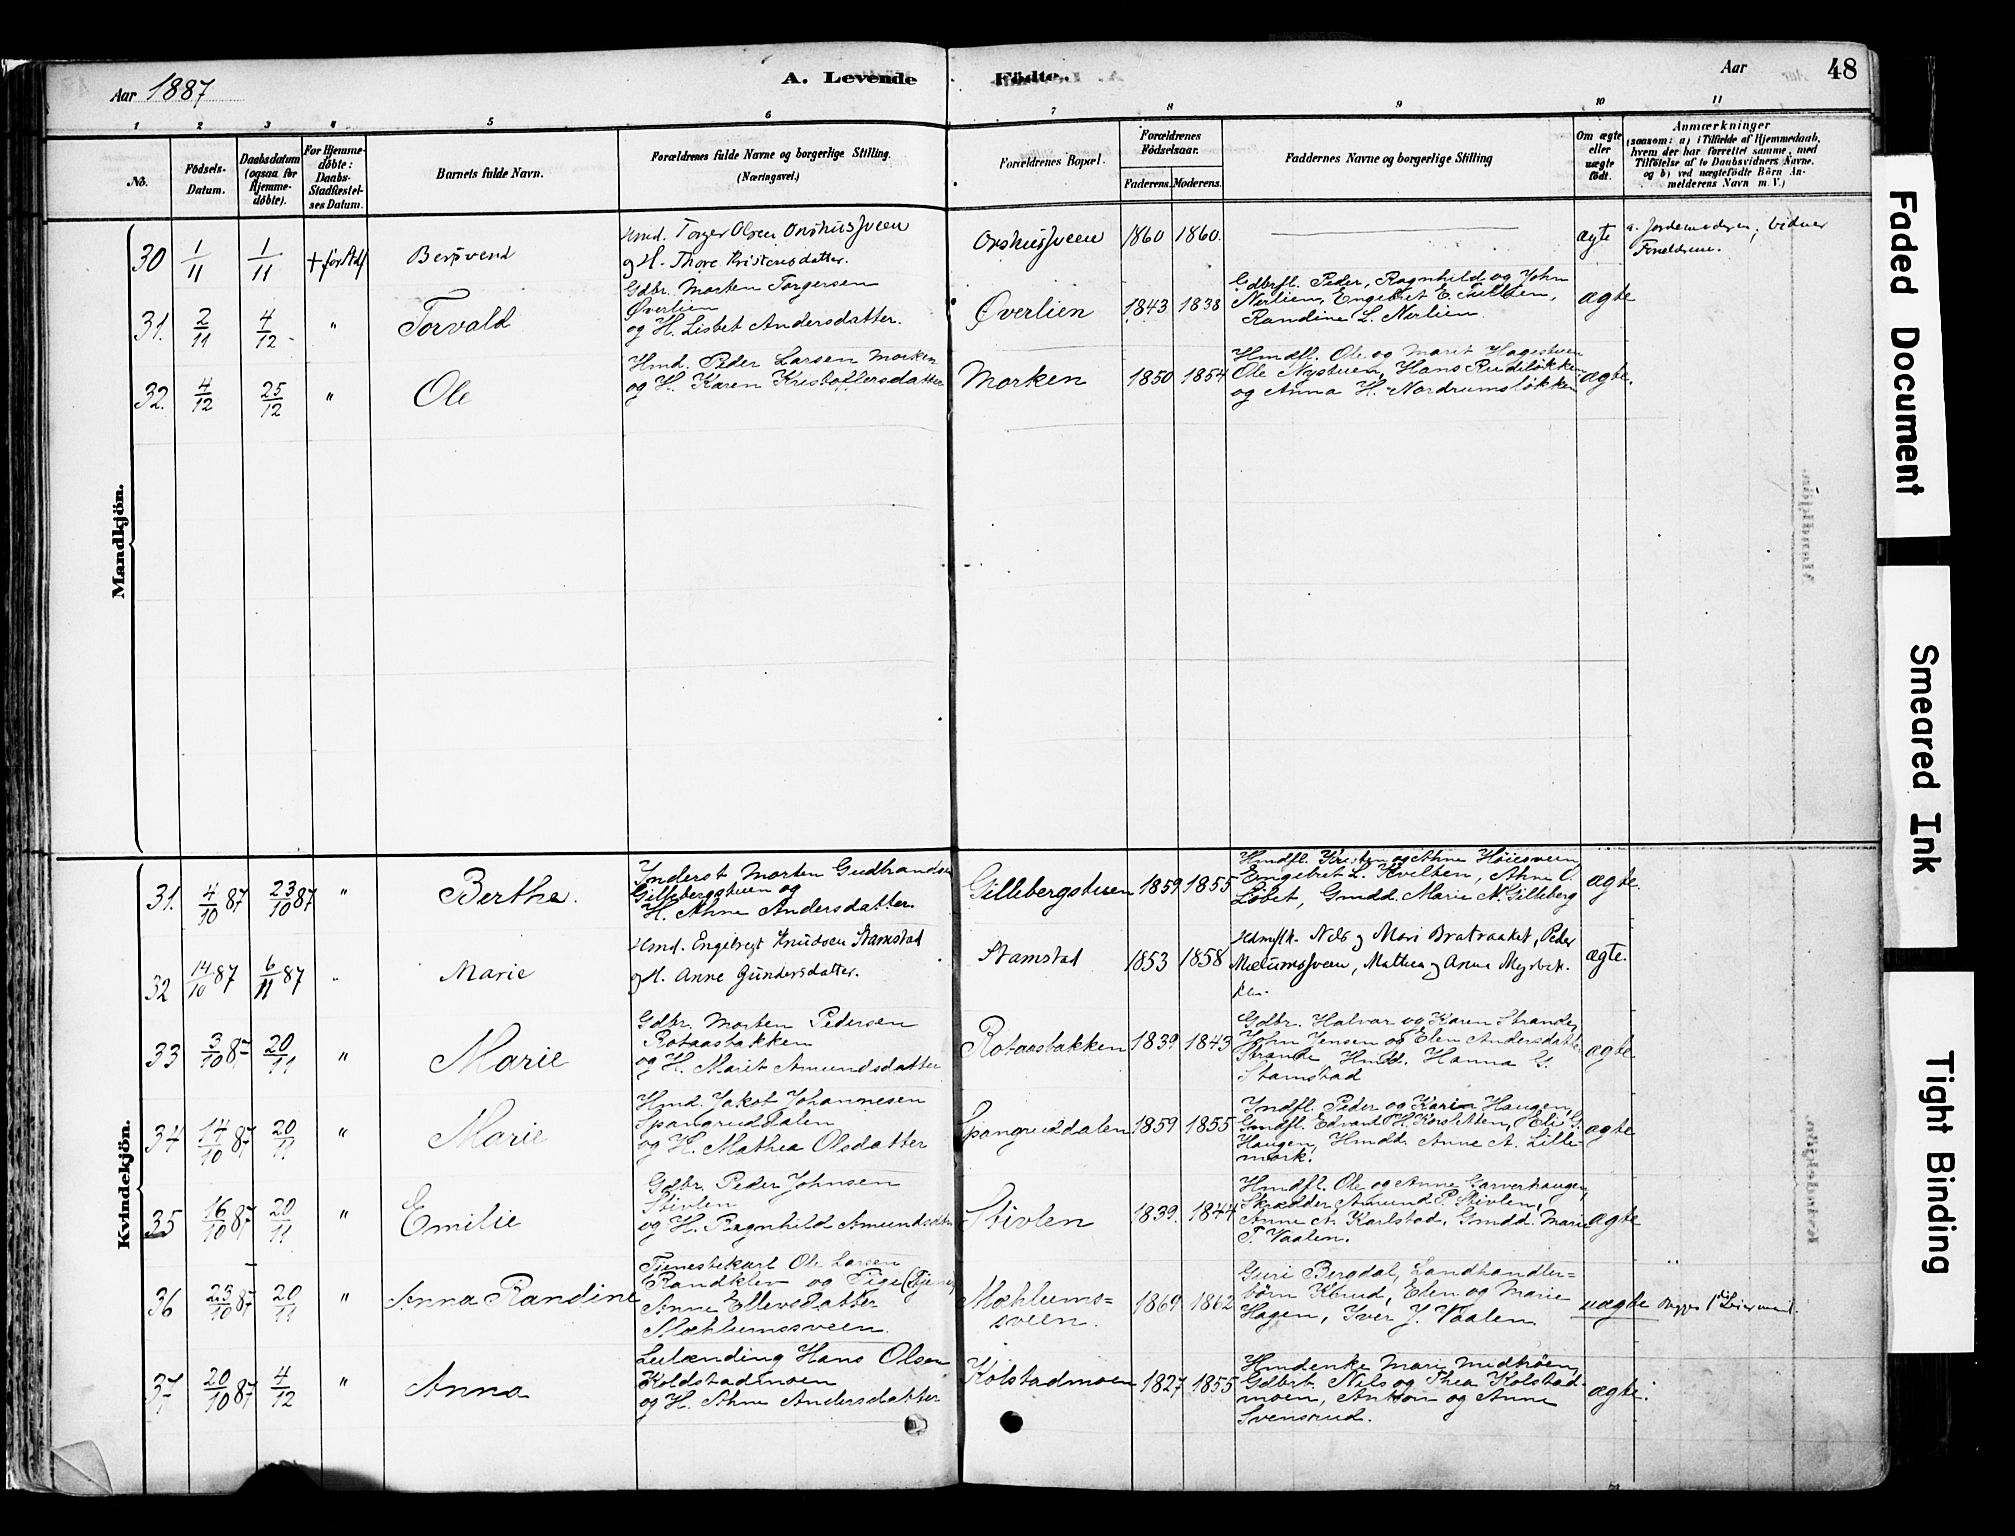 Aar 1887
A. Levende
Födte.
Aar
48
1 2 3 4 5 6 7 8 9 10 11
No.
Födsels-
Datum.
Daabsdatum
(ogsaa for
Hjemme-
döbte).
For Hjemme-
döbte:
Daabs-
Stadfæstel-
ses Datum.
Barnets fulde Navn.
Forældrenes fulde Navne og borgerlige Stilling.
(Næringsvei.)
Forældrenes Bopæl.
Forældrenes
Födselsaar.
Faderens. Moderens.
Faddernes Navne og borgerlige Stilling
Om ægte
eller
uægte
født.
Anmærkninger
(saasom: a) i Tilfælde af Hjemmedaab,
hvem der har forrettet samme, med
Tilföielse af to Daabsvidners Navne.
og b) ved uægtefödte Börn An-
melderens Navn m. V.)
Mandkjön.
30 1/11 1/11
Hmd. Torger Olsen Onshussveen
og H. Thore Kristensdatter.
Onshussveen 1860 1860.
ægte
a. Jordemoderen; vidner
Forældrene.
31. 2/11 4/12 " Torvald
Gdbr. Morten Torgersen
Øverlien
og H. Lisbet Andersdatter.
Øverlien 1843 1838
Gdbrfl. Peder, Ragnhild og John
Nerlien, Engebret E.
Randine L. Nerlien
ægte
32. 4/12 25/12 " Ole
Hmd. Peder Larsen Morken
og H. Karen Kristoffersdatter
Morken 1850 1854
Hmdfl. Ole og Marit Hagestuen
Ole Nystuen, Hans Rudsløkken
og Anna H. Nordrumsløkken
ægte.
Kvindekjön.
31. 4/10 87 23/10 87 " Berthe.
Inderst Morten Gudbrandsen
Gillebergstuen og
H. Ahne Andersdatter.
Gillebergstuen 1859 1855
Hmdfl. Kristen og Ahne Høiesveen
Engebret L. Kvilten, Ahne O.
Løbet, Gmdd. Marie N. Gilleberg
ægte.
32 14/10 87 6/11 87 " Marie
Hmd. Engebregt Knudsen Stamstad
og H. Anne Gundersdatter.
Stamstad 1853 1858
Nels og Mari Bratvaaket, Peder
Mælumssveen, Mathea og Anna Myrbak-
ken.
ægte.
33 3/10 87 20/11 " Marie
Gdbr. Morten Pedersen
Rotaasbakken
og H. Marit Amundsdatter
Rotaasbakken 1839 1843
Gdbr. Halvar og Karen Strande,
John Jensen og Elen Andersdatter
Strande, Hmdd. Hanna G.
Stamstad
ægte
34 14/10 87 20/11 " Marie
Hmd. Jakob Johannesen
Spangruddalen
og H. Mathea Olsdatter
Spangruddalen 1859 1855
Indfl. Peder og Karin Haugen,
Gmdfl. Edvart H. Korsletten, Eli G.
Haugen, Hmdd. Anne A. Lille-
mork.
ægte
35 16/10 87 20/11 " Emilie
Gdbr. Peder Johnsen
Stivlen
og H. Ragnhild Amundsdatter
Stivlen 1839. 1844
Hmdfl. Ole og Anne Garverhaugen,
Skrædder Amund P. Stivlen,
Anne A. Karlstad, Gmdd. Marie
T. Vaalen.
ægte
36 23/10 87 20/11 " Anna Randine
Tjenestekarl Ole Larsen
Randklev og Pige (Tjen.)
Anne Ellevsdatter
Mæhlumssveen.
Mæhlums=
sveen. 1869 1862
Guri Bergdal, Landhandler=
børn Knud, Elen og Marie
Hagen, Iver J. Vaalen
uægte Begges 1ste Leiermaal.
37 20/10 87 4/12 " Anna
Leilænding Hans Olsen
Koldstadmoen
og H. Ahne Andersdatter
Kolstadmoen 1827 1855
Hmdenke Mari Midtøen,
Gdbrt. Nils og Thea Kolstad-
moen, Anton og Anne
Svensrud.
ægte.
Faded Document
Smeared Ink
Tight Binding